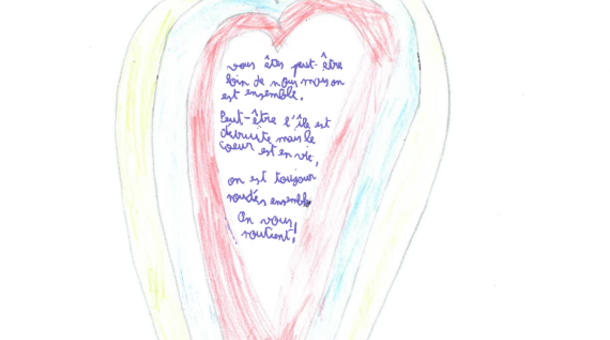 vous êtes peut-être
loin de nous mais on
est ensemble.
Peut-être l'île est
détruite mais le
coeur est en vie,
on est toujour
soudés ensemble
On vous
soutient!